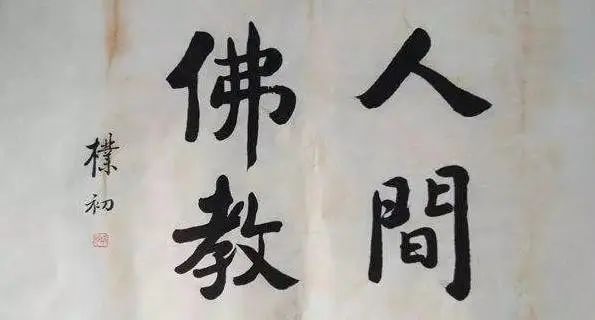 人間
佛教
樸初